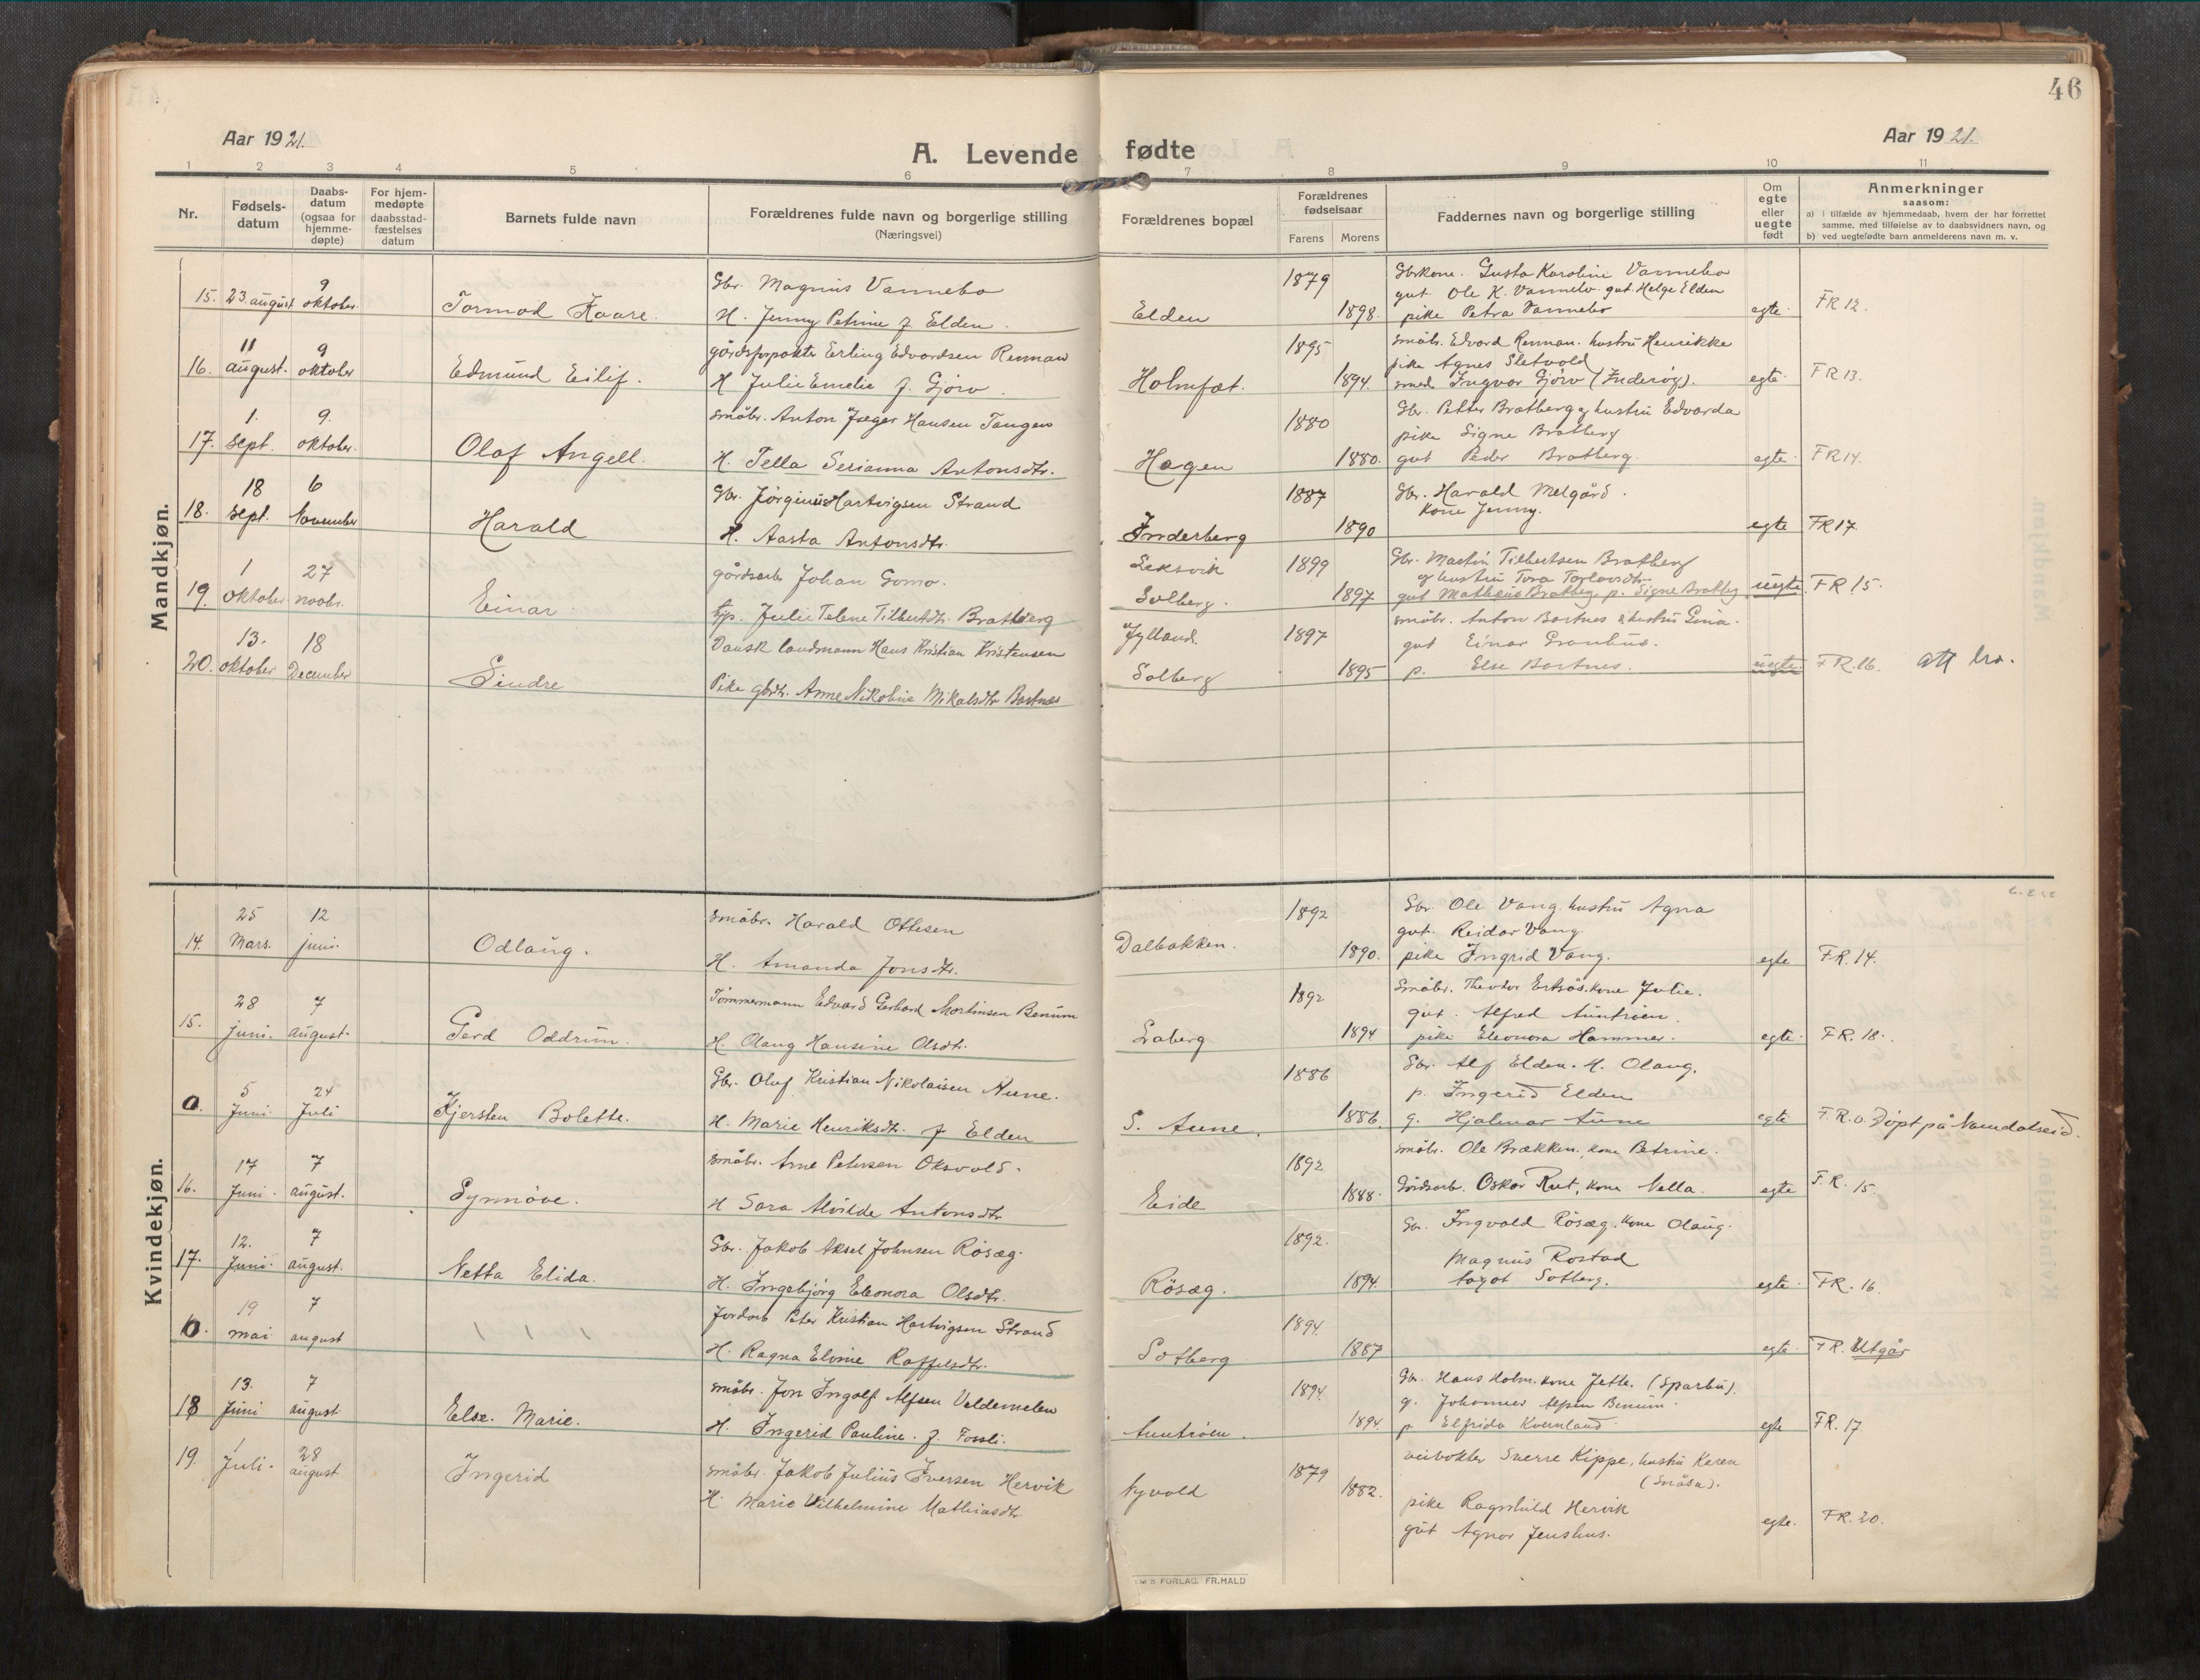 46
Aar 1921.
A. Levende fødte
Aar 1921.
1 2 3 4 5 6 7 8 9 10 11
Nr.
Fødsels-
datum
Daabs-
datum
(ogsaa for
hjemme-
døpte)
For hjem-
medøpte
daabsstad-
fæstelses
datum
Barnets fulde navn
Forældrenes fulde navn og borgerlige stilling
(Næringsvei)
Forældrenes bopæl
Forældrenes
fødselsaar
Farens Morens
Faddernes navn og borgerlige stilling
Om
egte
eller
uegte
født
Anmerkninger
saasom:
a) i tilfælde av hjemmedaab, hvem der har forrettet
samme, med tilføielse av to daabsvidners navn, og
b) ved uegtefødte barn anmelderens navn m. v.
Mandkjøn.
15. 23. august 9 oktober. Tormod Kaare.
Gbr. Magnus Vannebo
H. Jenny Petrine f. Elden.
Elden 1879 1898.
Gbrkone. Gusta Karoline Vannebo
gut Ole K. Vannebo. gut. Helge Elden
pike Petra Vannebo
egte. FR 12.
16. 11 august. 9 oktober Edmund Eilif.
gårdsforpakter Erling Edvardsen Renman
H Julie Emelie f. Gjørv.
Holmfæt. 1895 1894.
småbr. Edvard Renman. hustru Henrikke
pike Agnes Sletvold
smed Ingvar Gjørv (Inderøy).
egte. FR 13.
17. 1. sept. 9. oktober. Olaf Angell.
småbr. Anton Jæger Hansen Tangen
H. Tella Serianna Antonsdtr.
Hagen 1880 1880.
Gbr. Petter Bratberg og hustru Edvarda
pike Signe Bratberg
gut Peder Bratberg.
egte. FR 14.
18. 18 sept. 6 November Harald
Gbr. Jørginus Hartvigsen Strand
H. Aasta Antonsdtr.
Inderberg 1887 1890
Gbr. Harald Melgård.
Kone Jenny.
egte FR 17.
19. 1 oktober 27 novbr. Einar.
gårdsarb. Johan Gomo.
tjp. Julie Telene Tilbertdtr. Bratberg
Leksvik
Solberg. 1899 1897
Gbr. Martin Tilbertsen Bratberg
og hustru Tora Torlovsdtr.
gut Matheus Bratberg p. Signe Bratberg
uegte. FR 15.
20. 13. oktober 18 December Sindre
Dansk landmann Hans Kristian Kristensen
Pike gbdtr. Anne Nikoline Mikalsdtr Bartnes
Jylland.
Solberg 1897 1895
småbr. Anton Bartnes & hustru Gina.
gut Einar Granhus.
p. Else Bartnes.
uegte. FR. 16. att
Kvindekjøn.
14. 25 Mars. 12 juni. Odlaug.
småbr. Harald Ottesen
H. Amanda Jonsdtr.
Dalbakken. 1892 1890.
Gbr. Ole Vang. hustru Agna
gut. Reidar Vang.
pike Ingrid Vang.
egte FR. 14.
15. 28 juni. 7 august. Gerd Oddrun.
Tømmermann Edvard Gerhard Mortinsen Benum
H. Olaug Hansine Olsdtr.
Laberg 1892 1894
Småbr. Theodor Ertsås. kone Julie.
gut. Alfred Auntrøen.
pike Eleonora Hammer.
egte. FR. 18.
0. 5 Juni 24 Juli Kjersten Bolette.
Gbr. Oluf Kristian Nikolaisen Aune.
H. Marie Henriksdtr. f Elden
S. Aune. 1886 1886.
Gbr. Alf Elden. H. Olaug.
p. Ingerid Elden
g. Hjalmar Aune
egte F.R.0. Døpt på Namdalseid.
16. 17 Juni. 7 august. Synnøve.
småbr. Arne Petersen Oksvold.
H Sara Alvilde Antonsdtr
Eide 1892 1888.
småbr. Ole Brækken, kone Petrine.
Gårdsarb. Oskar Rut, kone Nella.
egte F.R. 15.
17. 12. Juni. 7 august. Netta Elida.
Gbr. Jakob Aksel Johnsen Røsæg.
H. Ingebjørg Eleonora Olsdtr.
Røsæg. 1892. 1894.
Gbr. Ingvald Røsæg. kone Olaug.
Magnus Rostad
Solberg.
egte. FR. 16.
0. 19 mai 7 august
Jordarb Peter Kristian Hartvigsen Strand
H. Ragna Elvine Raffelsdtr.
Solberg 1894. 1887
egte. FR. Utgår
18 13. Juni 7 august Else. Marie.
småbr. Jon Ingolf Alfsen Veldemelen
H. Ingerid Pauline. f. Fossli.
Auntrøen. 1894. 1894.
Gbr. Hans Holm. kone Jette. (Sparbu).
g. Johannes Alfsen Benum.
p. Elfrida Kvernland
egte FR. 17.
19. 1 Juli. 28 august Ingerid
småbr. Jakob Julius Iversen Hervik
H. Marie Vilhelmine Mathiasdtr.
Nyvold 1879 1882.
veivokter Sverre Kippe, hustru Keren
(Snåsa).
pike Ragnhild Hervik
gut Agnar Jenshus.
egte. FR. 20.
FORLAG. FR. HALD